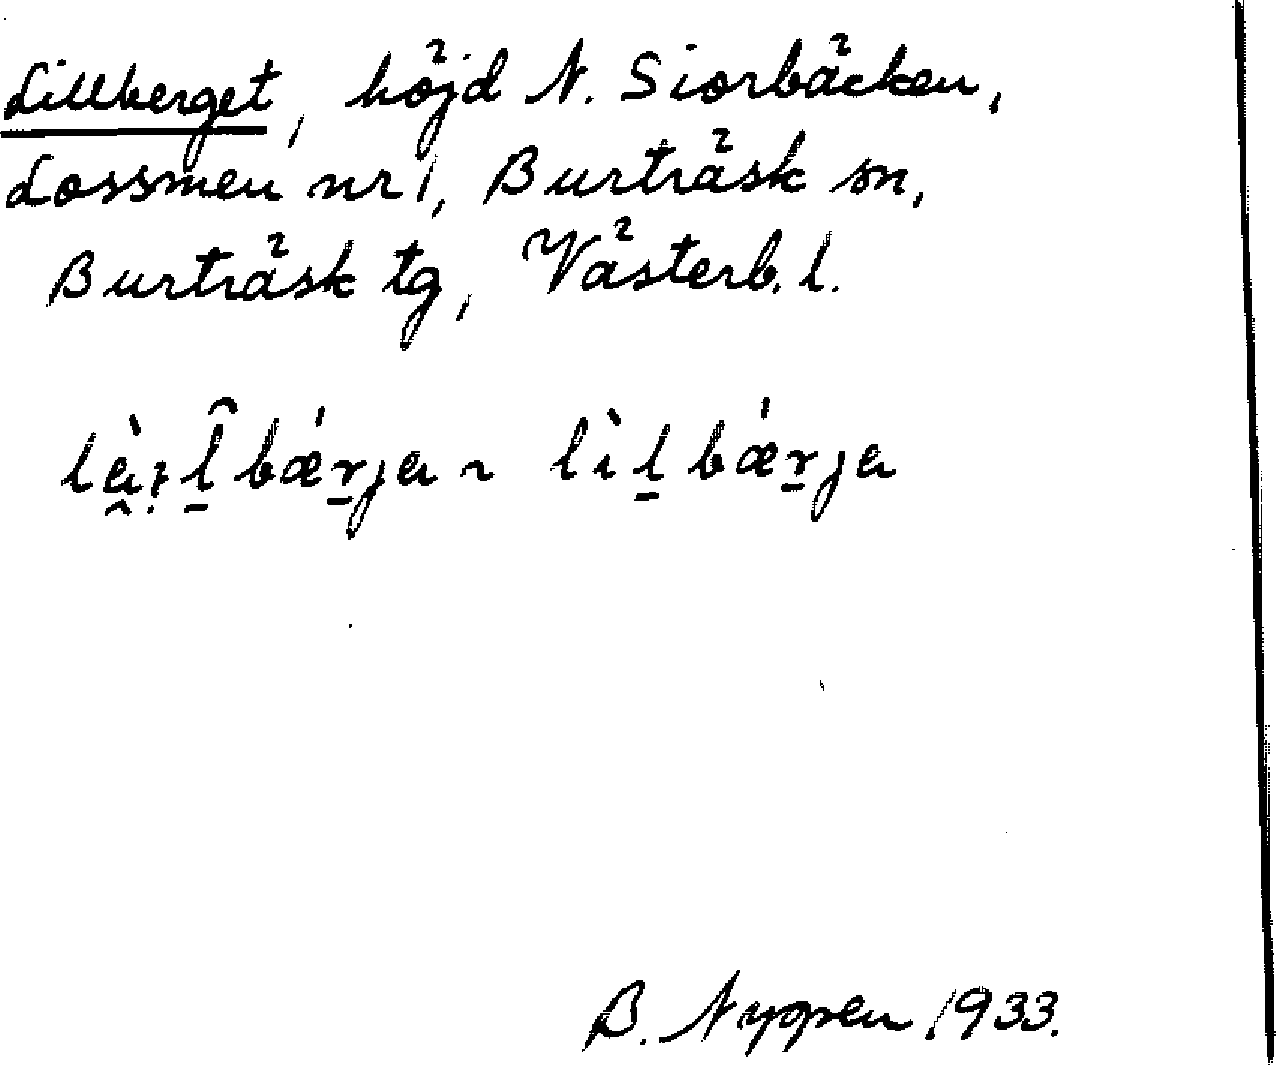 Lillberget, höjd N. Siorbäcken,
Lossmen nr 1, Burträsk sn,
Burträsk tg, Västerb. l.
lìl̠bǽr̠ja
B. Nyppen 1933.